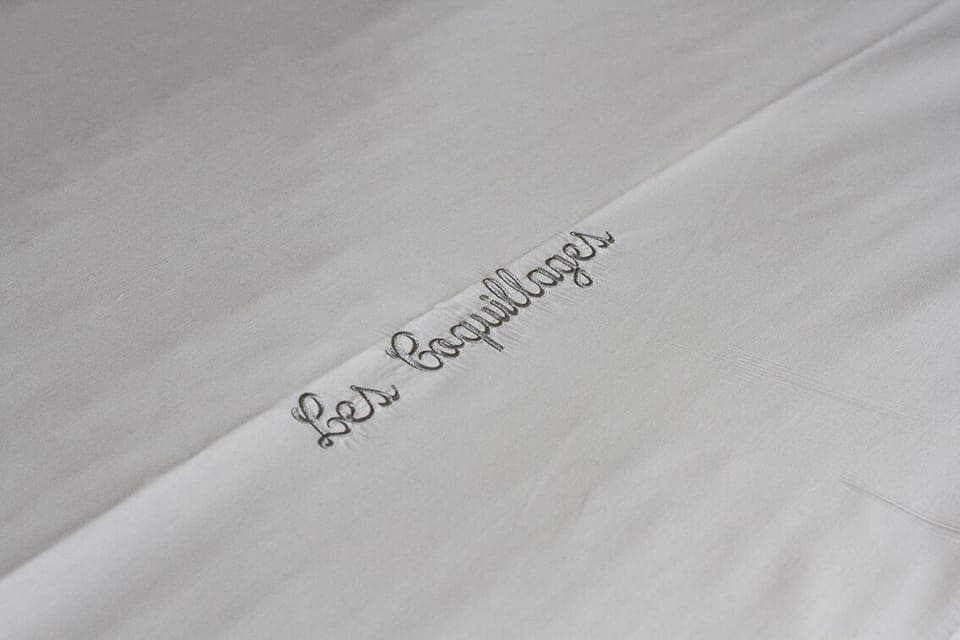 Les Coquillages